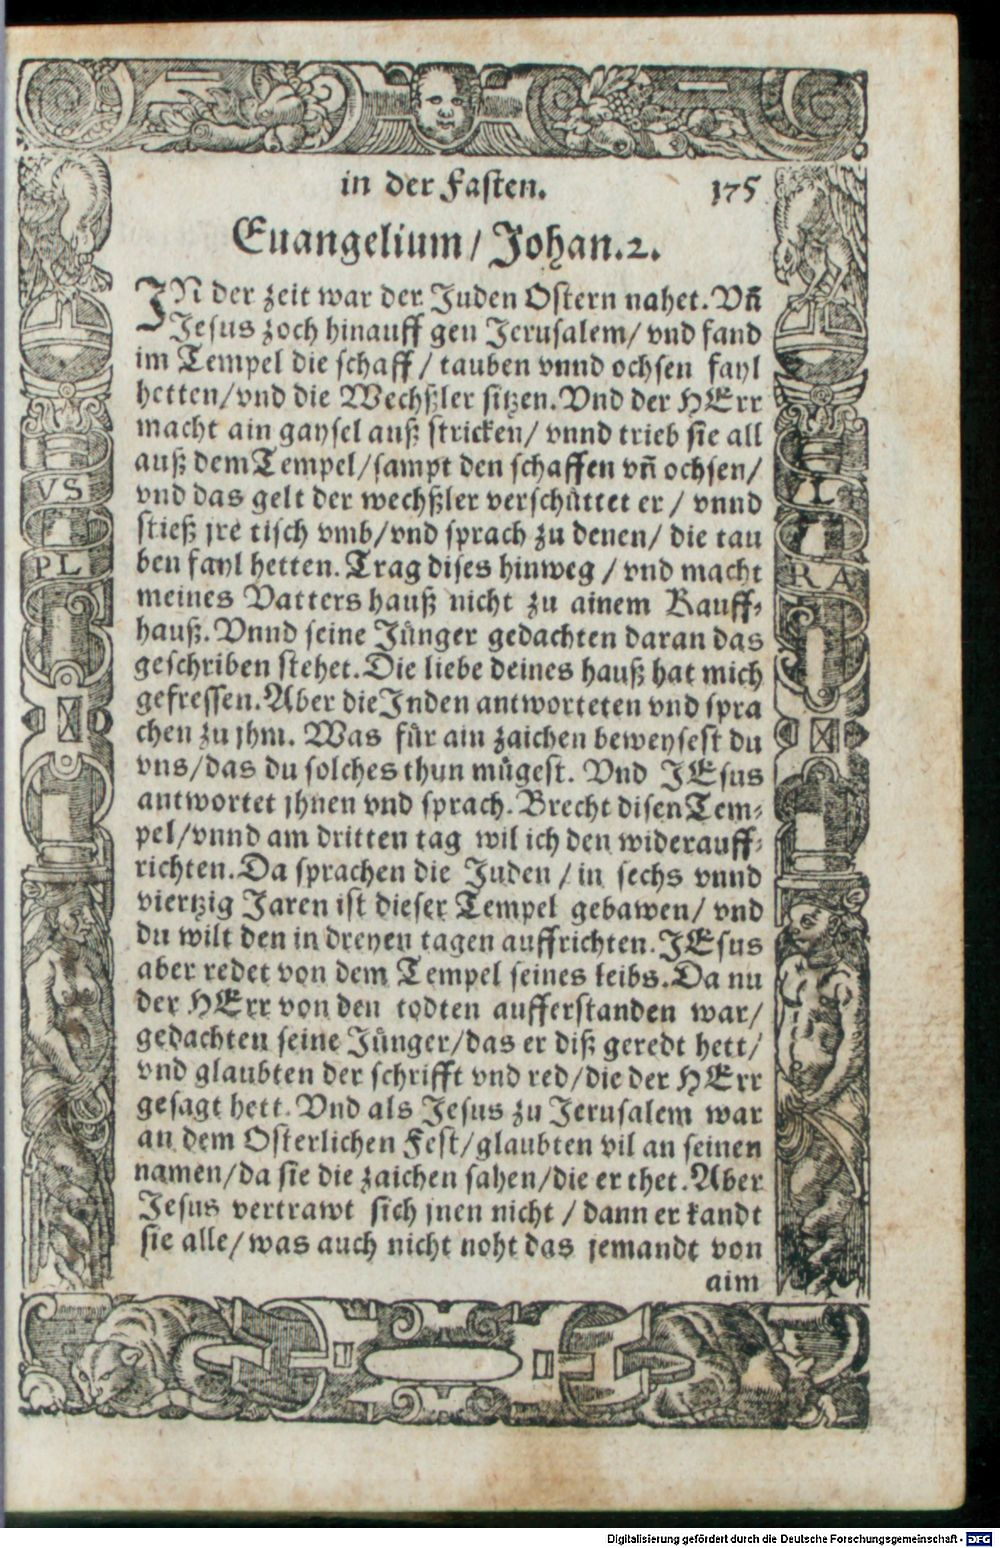 in der Fasten. 175
Euangelium / Johan. 2.
IN der zeit war der Juden Ostern nahet. Vñ
Jesus zoch hinauff gen Jerusalem / vnd fand
im Tempel die schaff / tauben vnnd ochsen fayl
hetten / vnd die Wechßler sitzen. Vnd der HErr
macht ain gaysel auß stricken / vnnd trieb sie all
auß dem Tempel / sampt den schaffen vñ ochsen /
vnd das gelt der wechßler verschüttet er / vnnd
stieß jre tisch vmb / vnd sprach zu denen / die tau
ben fayl hetten. Trag dises hinweg / vnd macht
meines Vatters hauß nicht zu ainem Kauff⸗
hauß. Vnnd seine Jünger gedachten daran das
geschriben stehet. Die liebe deines hauß hat mich
gefressen. Aber die Jnden antworteten vnd spra
chen zu jhm. Was für ain zaichen beweysest du
vns / das du solches thun mügest. Vnd JEsus
antwortet jhnen vnd sprach. Brecht disen Tem⸗
pel / vnnd am dritten tag wil ich den widerauff⸗
richten. Da sprachen die Juden / in sechs vnnd
viertzig Jaren ist dieser Tempel gebawen / vnd
du wilt den in dreyen tagen auffrichten. JEsus
aber redet von dem Tempel seines leibs. Da nu
der HErr von den todten aufferstanden war /
gedachten seine Jünger / das er diß geredt hett /
vnd glaubten der schrifft vnd red / die der HErr
gesagt hett. Vnd als Jesus zu Jerusalem war
an dem Osterlichen Fest / glaubten vil an seinen
namen / da sie die zaichen sahen / die er thet. Aber
Jesus vertrawt sich jnen nicht / dann er kandt
sie alle / was auch nicht noht das jemandt von
aim
VS
PL
VL
RA
Digitalisierung gefördert durch die Deutsche Forschungsgemeinschaft - DFG